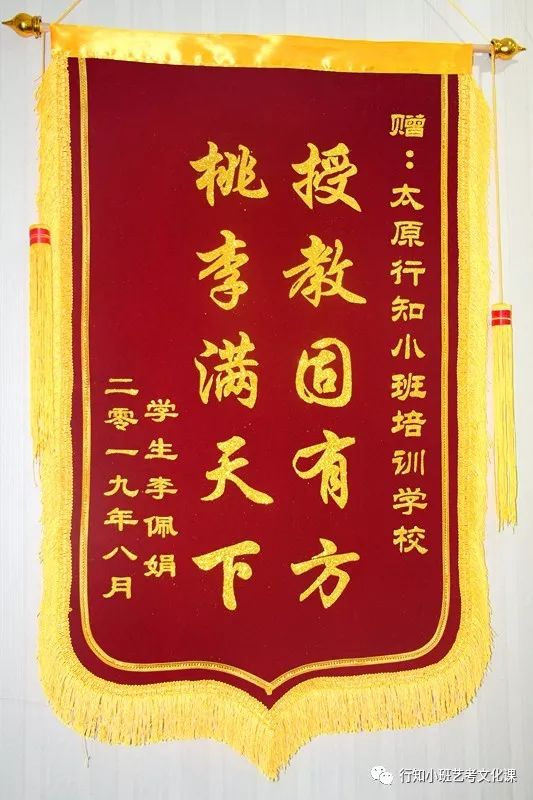 赠：太原行知小班培训学校
授教固有方
桃李满天下
学生李佩娟
二零一九年八月
行知小班艺考文化课